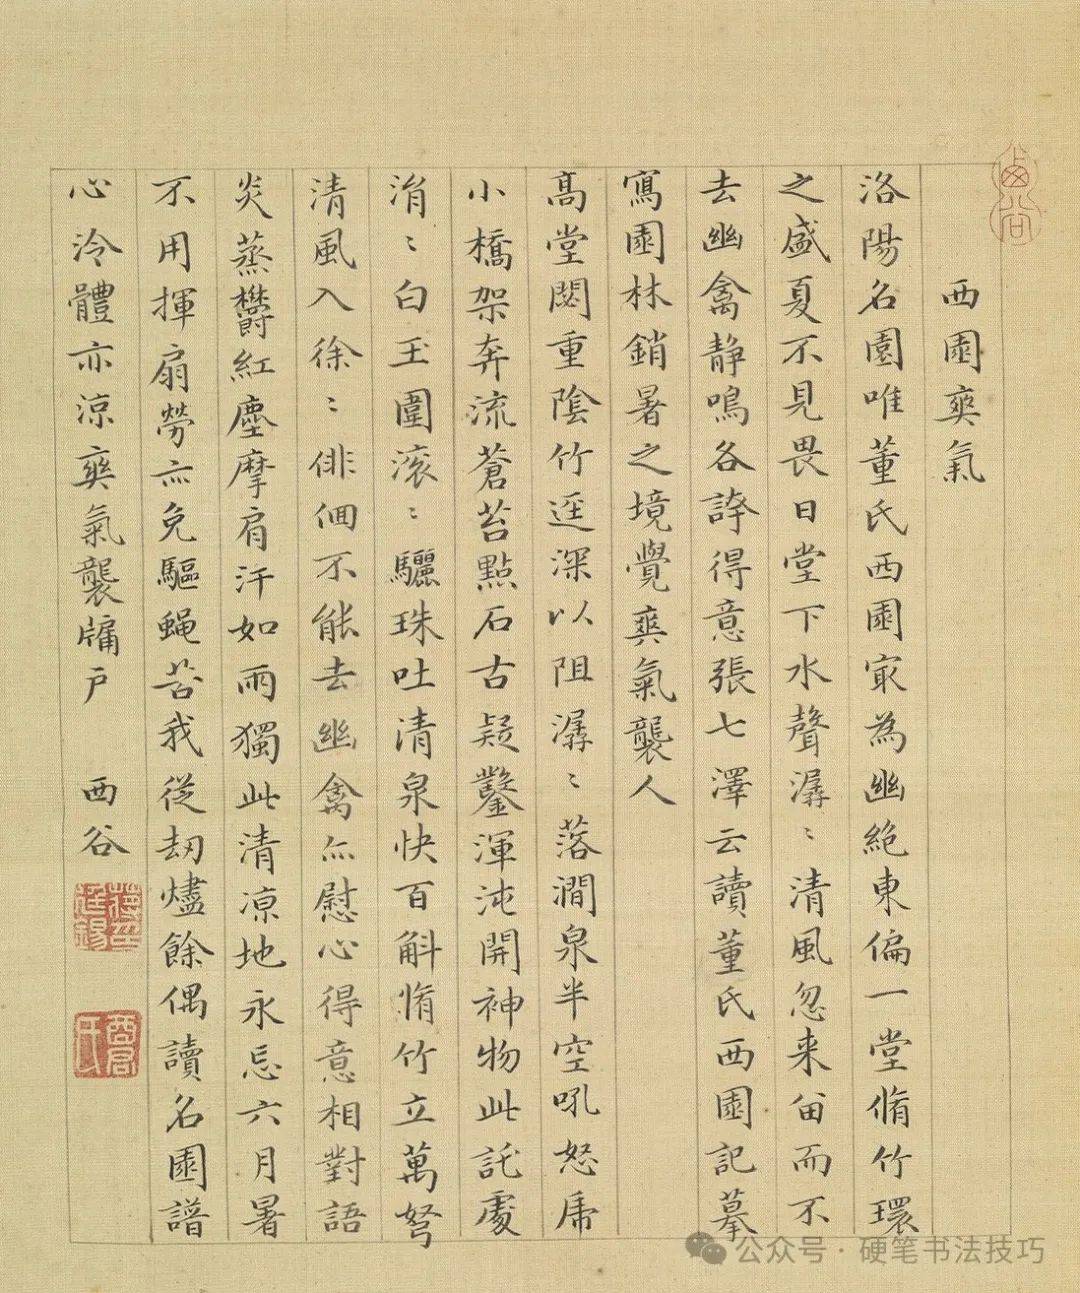 西園爽氣
洛陽名園唯董氏西園㝡為幽絶東偏一堂脩竹環
之盛夏不見畏日堂下水聲潺〻清風忽来留而不
去幽禽静鳴各誇得意張七澤云讀董氏西園記摹
寫園林銷暑之境覺爽氣襲人
高堂閟重陰竹逕深以阻潺〻落澗泉半空吼怒虎
小橋架奔流蒼苔點石古疑鑿渾沌開神物此託處
涓〻白玉圍滚〻驪珠吐清泉快百斛脩竹立萬弩
清風入徐〻俳佪不能去幽禽亦慰心得意相對語
炎蒸欝紅塵摩肩汗如雨獨此清凉地永忘六月暑
不用揮扇勞亦免驅蝇苦我從劫燼餘偶讀名園譜
心冷體亦凉爽氣襲牖戶 西谷
蔣廷錫
酉君氏
公众号·硬笔书法技巧